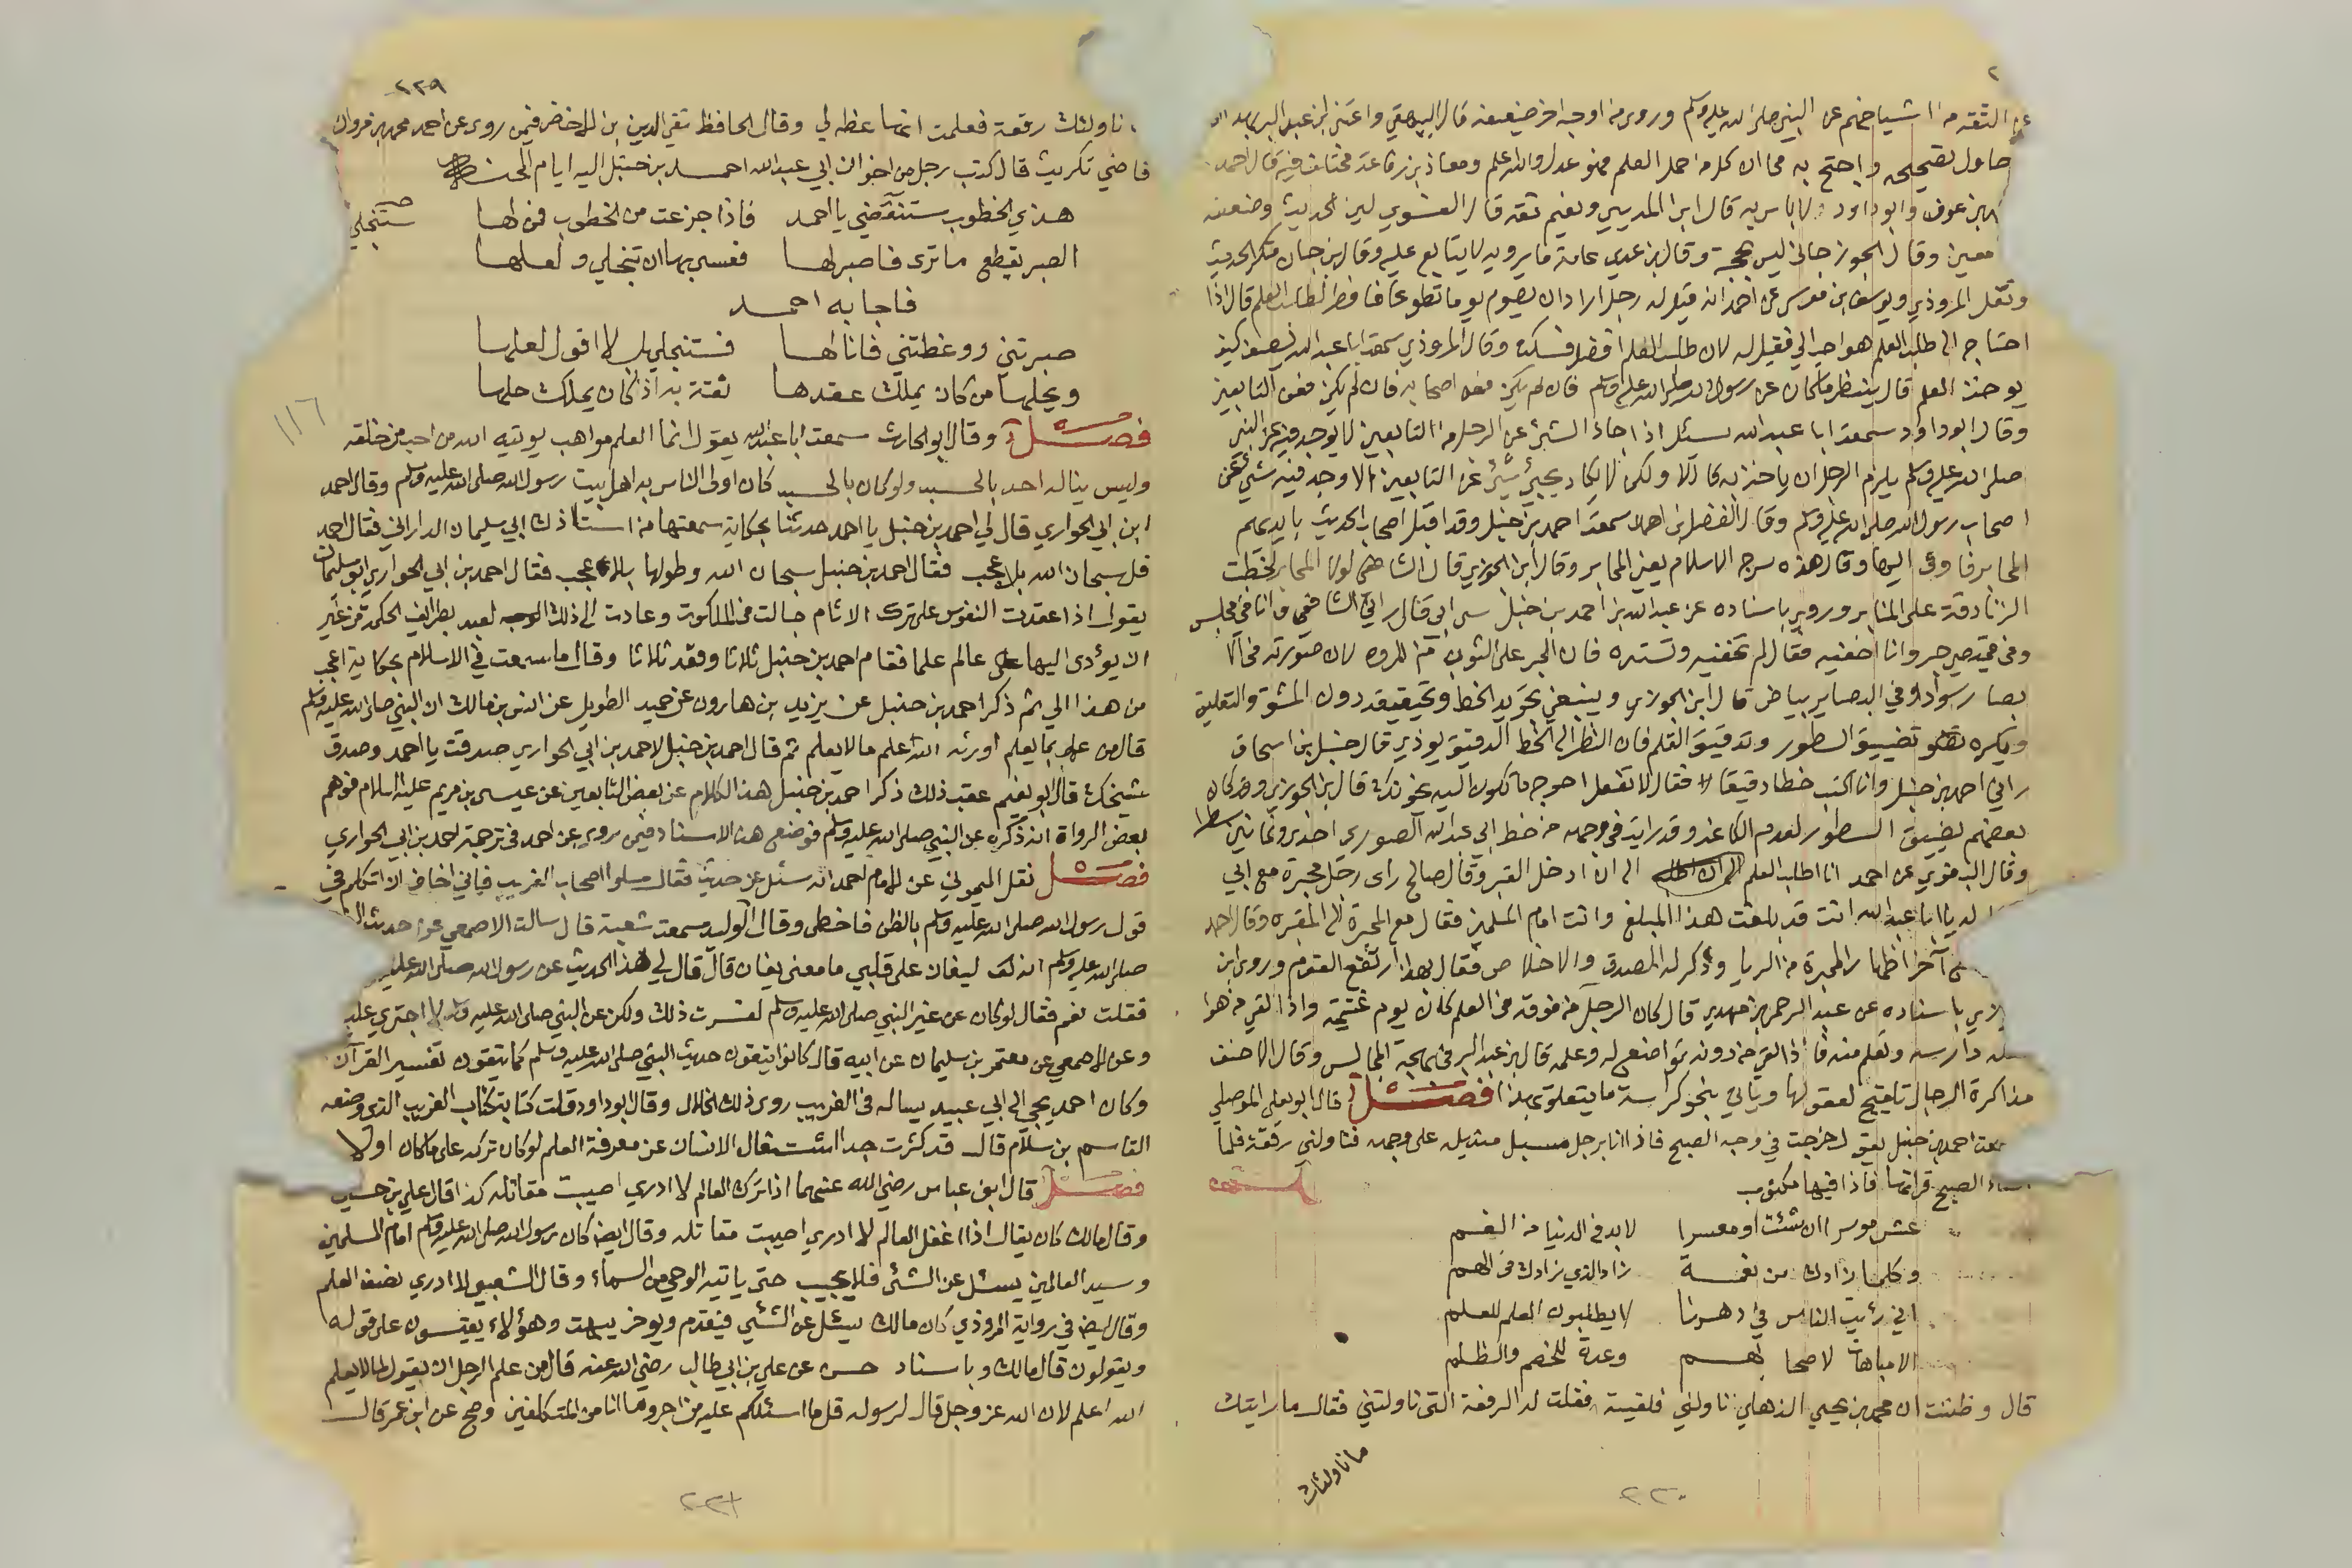 الثقة من اشياخهم عن النبي صلى الله عليه وسلم وروى من اوجه اخر ضعيفة قال البيهقي واعتنى ابن عبد البر
حاول تصحيحه واحتج به محا ان كل من احمل العلم فهو عدل والله اعلم ومعاذ بن رفاعة مختلف فيه قال احمد
بن عوف وابو داود لا باس به قال ابن المديني ودحيم ثقة قال الفسوي لين الحديث وضعفه
معين وقال الجوزجاني ليس بحجة وقال ابن عدي عامة ما يرويه لا يتابع عليه وقال ابن حبان منكر الحديث
ونقل المروذي ويوسف بن موسى عن احمد انه قيل له رجل اراد ان يصوم يوما تطوعا فافطر لطلب العلم قال اذا
احتاج الى طلب العلم هو احب الي فقيل له لان طلب العلم افضل فسكت وقال المروذي سمعت ابا عبد الله يصف كيف
يوخذ العلم قال ينظر ما كان عن رسول الله صلى الله عليه وسلم فان لم يكن فعن اصحابه فان لم يكن فعن التابعين
وقال ابو داود سمعت ابا عبد الله سئل اذا جاء الشئ عن الرجل من التابعين لا يوجد فيه عن النبي
صلى الله عليه وسلم يلزم الرجل ان ياخذ به قال لا ولكن لا يكاد يجئ شئ عن التابعين الا وجد فيه شئ عن
اصحاب رسول الله صلى الله عليه وسلم وقال الفضل بن احمد سمعت احمد بن حنبل وقد اقبل اصحاب الحديث بايديهم
المحابر فاومى اليها وقال هذه سرج الاسلام يعني المحابر وقال ابن الجوزي قال الشافعي لولا المحابر لخطبت
الزنادقة على المنابر وروى باسناده عن عبد الله بن احمد بن حنبل ابي قال راني الشافعي وانا في مجلس
وفي قميصي حبر وانا اخفيه فقال لم تخفيه وتستره فان الحبر على الثوب من المروه لان صورته في الا
بصار سواد وفي البصاير بياض قال ابن الجوزي وينبغي تجويد الخط وتحقيقه دون المشق والتعليق
ويكره تضييق السطور وتدقيق القلم فان النظر الى الخط الدقيق يوذي قال حنبل بن اسحاق
راني احمد بن حنبل وانا اكتب خطا دقيقا فقال لا تفعل احوج ما تكون اليه يخونك قال ابن الجوزي وقد كان
بعضهم يضيق السطور لعدم الكاغد وقد رايت في وجهه من خط ابي عبد الله الصوري احدى وثمانين سطرا
وقال البغوي عن احمد انا اطلب العلم الى ان ادخل القبر وقال صالح راى رجل محبرة مع ابي
له يا ابا عبد الله انت قد بلغت هذا المبلغ وانت امام المسلمين فقال مع المحبرة الى المقبره وقال احمد
آخر اظهار المحبرة من الريا وذكر له الصدق والاخلاص فقال بهذا ارتفع القوم وروى ابن
باسناده عن عبد الرحمن بن مهدي قال كان الرجل من فوقه في العلم كان يوم غنيمة واذا لقي من هو
دارسه وتعلم منه فاذا لقي من دونه تواضع له وعلمه قال ابن عبد البر في بهجة المجالس وقال الاحنف
مذاكرة الرجال تلقيح لعقولها وياتي بنحو كراسة ما يتعلق بهذا فصل قال ابو يعلى الموصلي
سمعت احمد بن حنبل يقول خرجت في وجه الصبح فاذا انا برجل مسبل منديل على وجهه فناولني رقعة فلما
الصبح قراتها فاذا فيها مكتوب
عش موسرا ان شئت او معسرا لا بد في الدنيا من الغم
وكلما زادك من نعمة زاد الذي زادك في الهم
اني رئيت الناس في دهرنا لا يطلبون العلم للعلم
الا مباهاة لاصحابهم وعدة للخصم والظلم
قال وظننت ان محمد بن يحيى الذهلي ناولني فلقيته فقلت له الرقعة التي ناولتني فقال ما رايتك
ما ناولتك
٢٢٠
٢٢٩
ناولتك رقعة فعلمت انها عظة لي وقال الحافظ تقي الدين بن الاخضر فيمن روى عن احمد محمد بن مروان
قاضي تكريت قال كتب رجل من اخوان ابي عبد الله احمد بن حنبل اليه ايام المحنة
هذي الخطوب ستنقضي يا احمد فاذا جزعت من الخطوب فمن لها
ستنجلي
الصبر يقطع ما ترى فاصبر لها فعسى بها ان تنجلي ولعلها
فاجابه احمد
صبرتني ووعظتني فانا لها فستنجلي بل لا اقول لعلها
ويحلها من كان يملك عقدها ثقة به اذ كان يملك حلها
١١٦
فصل وقال ابو الحارث سمعت ابا عبد الله يقول انما العلم مواهب يوتيه الله من احب من خلقه
وليس يناله احد بالحسب ولو كان بالحسب كان اولى الناس به اهل بيت رسول الله صلى الله عليه وسلم وقال احمد
ابن ابي الحواري قال لي احمد بن حنبل يا احمد حدثنا بحكاية سمعتها من استاذك ابي سليمان الداراني فقال احمد
قل سبحان الله بلا عجب فقال احمد بن حنبل سبحان الله وطولها بلا عجب فقال احمد بن ابي الحواري سمعت ابا سليمان
يقول اذا عقدت النفوس على ترك الاثام جالت في الملكوت وعادت الى ذلك العبد بطرائف الحكمة من غير
ان يؤدى اليها عالم علما فقام احمد بن حنبل ثلاثا وقعد ثلاثا وقال ما سمعت في الاسلام بحكاية اعجب
من هذا الي ثم ذكر احمد بن حنبل عن يزيد بن هارون عن حميد الطويل عن انس بن مالك ان النبي صلى الله عليه وسلم
قال من عمل بما يعلم اورثه الله علم ما لا يعلم ثم قال احمد بن حنبل لاحمد بن ابي الحواري صدقت يا احمد وصدق
شيخك قال ابو نعيم عقب ذلك ذكر احمد بن حنبل هذا الكلام عن بعض التابعين عن عيسى بن مريم عليه السلام فوهم
بعض الرواة انه ذكره عن النبي صلى الله عليه وسلم فوضع هذا الاسناد فيمن روى عن احمد في ترجمة احمد بن ابي الحواري
فصل نقل الميموني عن الامام احمد انه سئل عن حديث فقال سلوا اصحاب الغريب فاني اخاف ان اتكلم في
قول رسول الله صلى الله عليه وسلم بالظن فاخطى وقال الوليد سمعت شعبة قال سالت الاصمعي عن حديث
صلى الله عليه وسلم انه ليغان على قلبي ما معنى يغان قال قال لي هذا الحديث عن رسول الله صلى الله عليه
فقلت نعم فقال لو كان عن غير النبي صلى الله عليه وسلم لفسرت ذلك ولكن عن النبي صلى الله عليه وسلم لا اجترئ عليه
وعن الاصمعي عن معتمر بن سليمان عن ابيه قال كانوا يتقون حديث النبي صلى الله عليه وسلم كما يتقون تفسير القرآن
وكان احمد يجي الى ابي عبيد يساله في الغريب روى ذلك الخلال وقال ابو داود قلت كتابة كتاب الغريب الذي وضعه
القاسم بن سلام قال قد كثرت جدا اشتغال الانسان عن معرفة العلم لو كان تركه على ما كان اولا
فصل قال ابن عباس رضي الله عنهما اذا ترك العالم لا ادري اصيبت مقاتله كذا قال علي بن حسين
وقال مالك كان يقال اذا اغفل العالم لا ادري اصيبت مقاتله وقال ايضا كان رسول الله صلى الله عليه وسلم امام المسلمين
وسيد العالمين يسئل عن الشئ فلا يجيب حتى ياتيه الوحي من السماء وقال الشعبي لا ادري نصف العلم
وقال ايضا في رواية المروذي كان مالك يسئل عن الشئ فيقدم ويوخر يبهت وهؤلاء يقيسون على قوله
ويقولون قال مالك وباسناد حسن عن علي بن ابي طالب رضي الله عنه قال من علم الرجل ان يقول لما لا يعلم
الله اعلم لان الله عز وجل قال لرسوله قل ما اسئلكم عليه من اجر وما انا من المتكلفين وصح عن ابن عمر قال
٢٢١